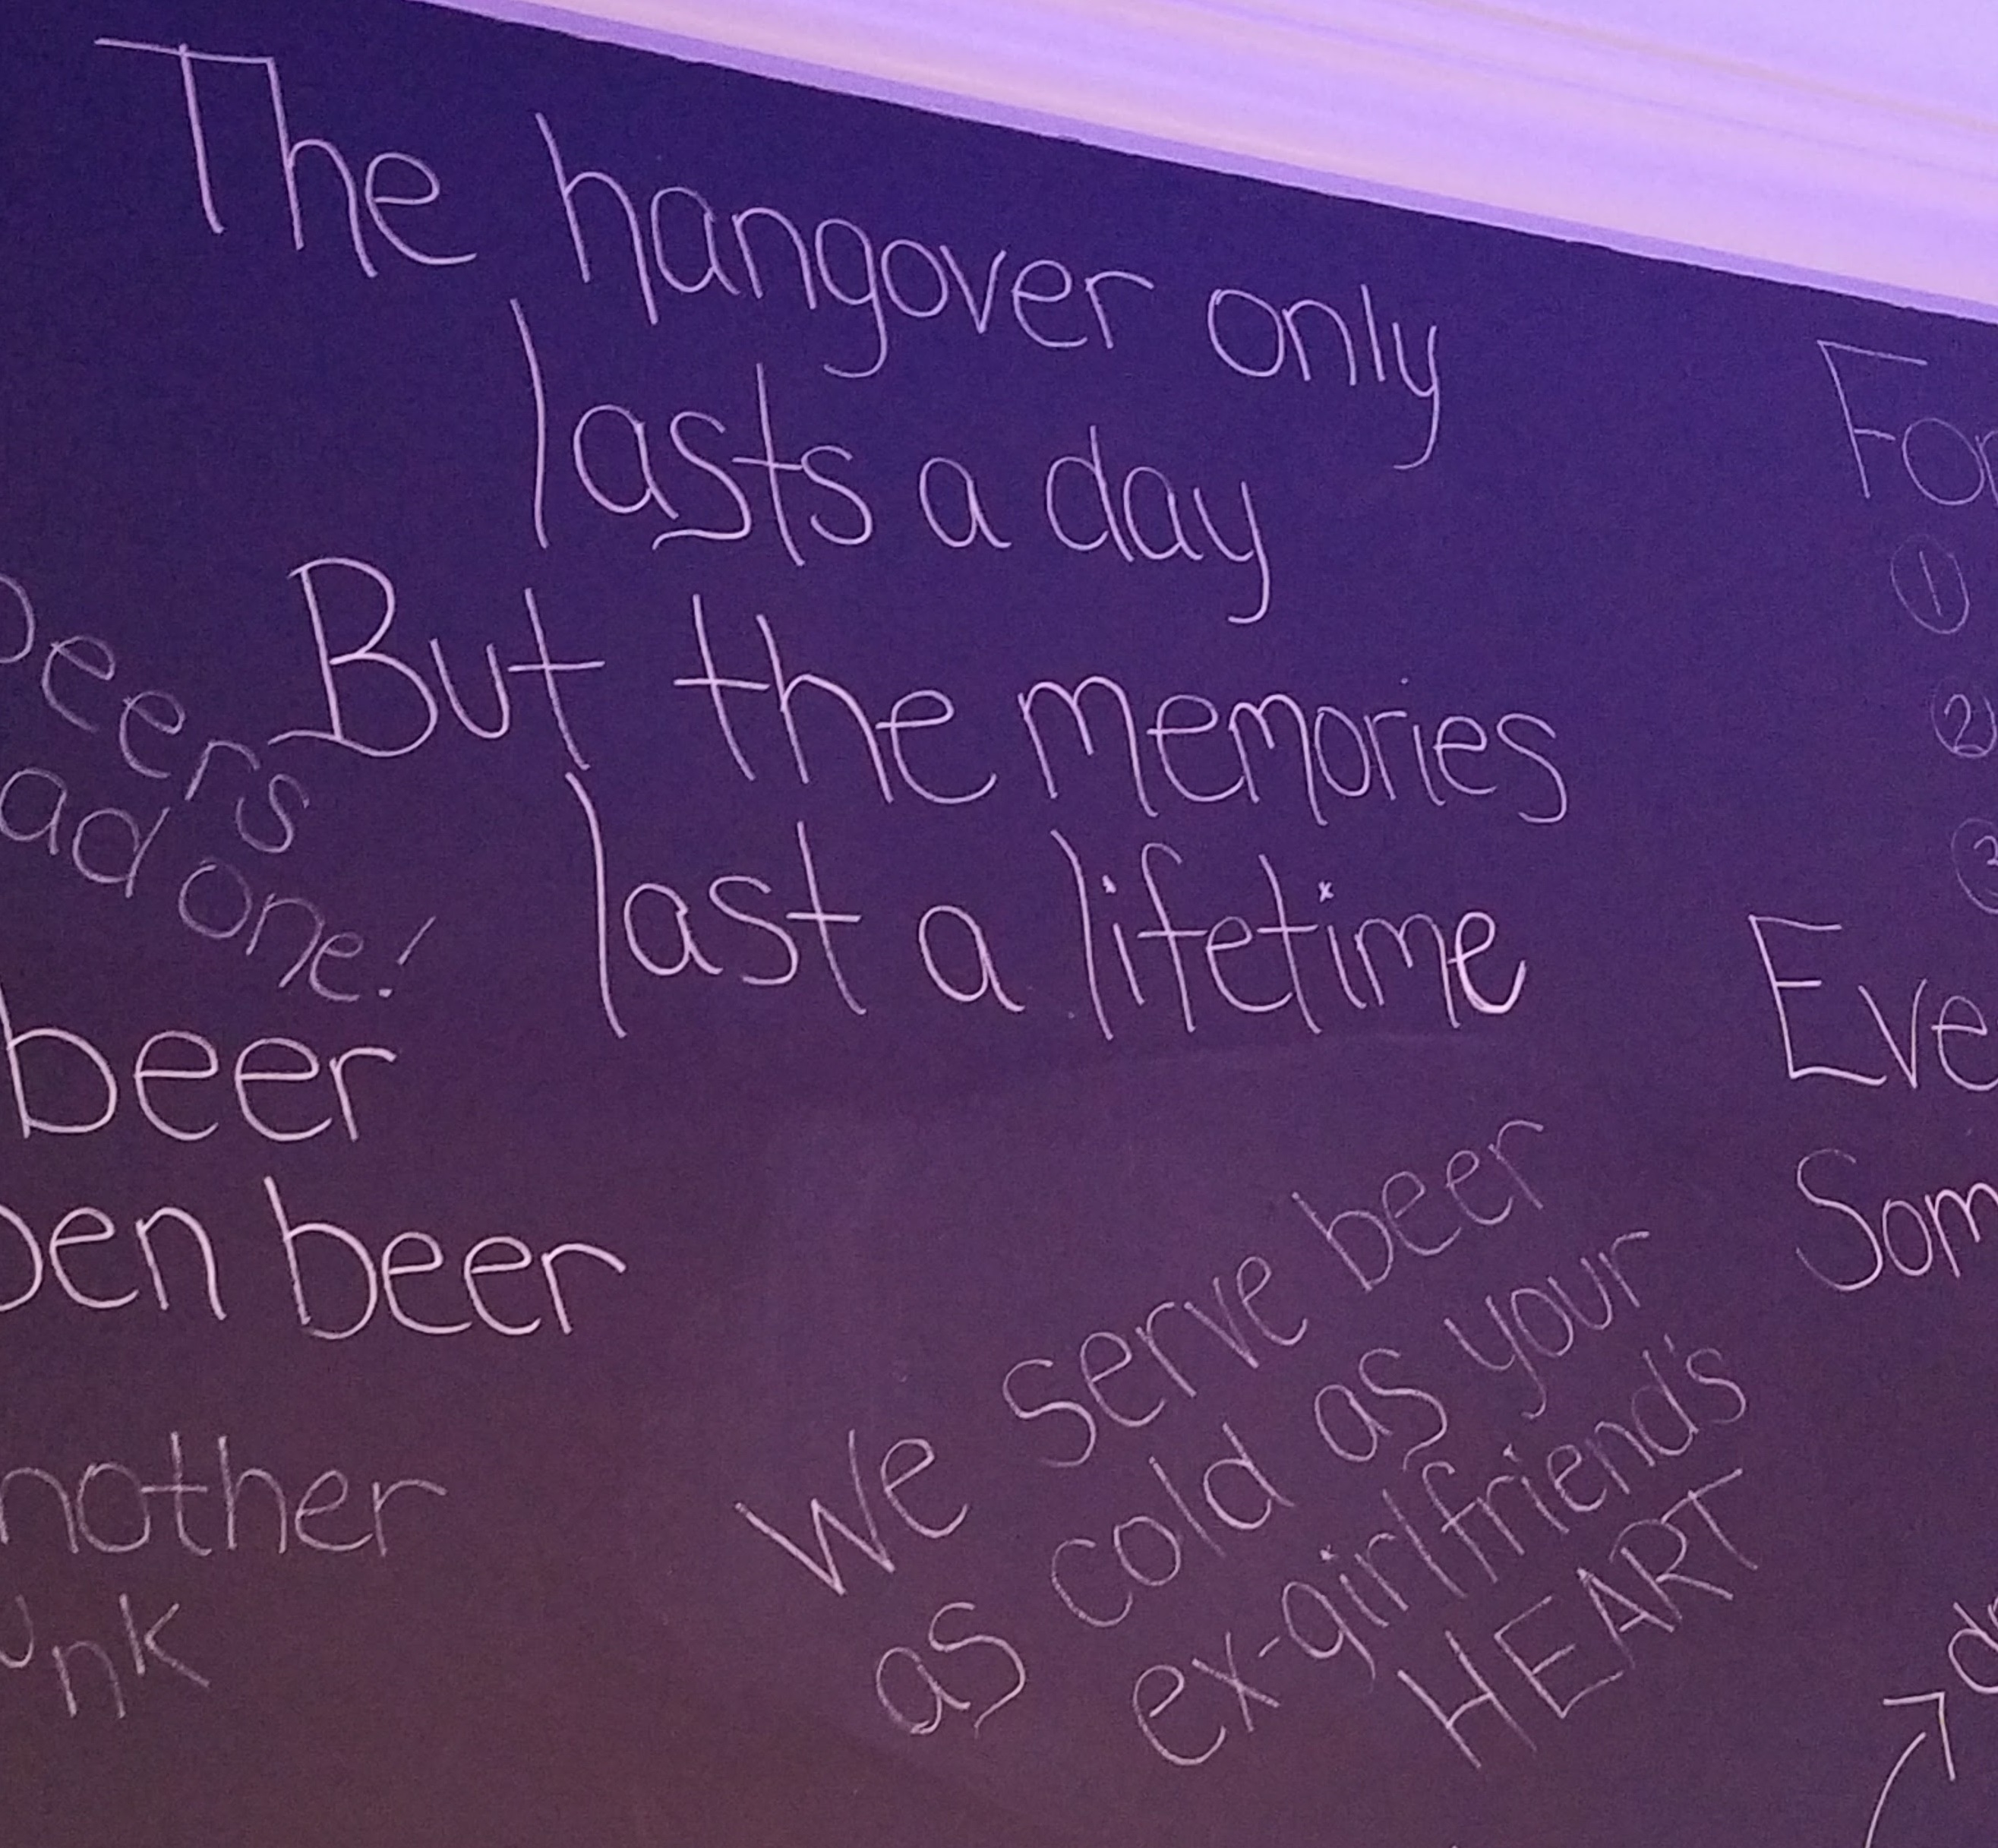 The hangover only
lasts a day
But the memories
last a lifetime
beers
ad one!
beer
pen beer
nother
unk
We serve beer
as cold as your
ex-girlfriend's
HEART
For
①
②
③
Eve
Som